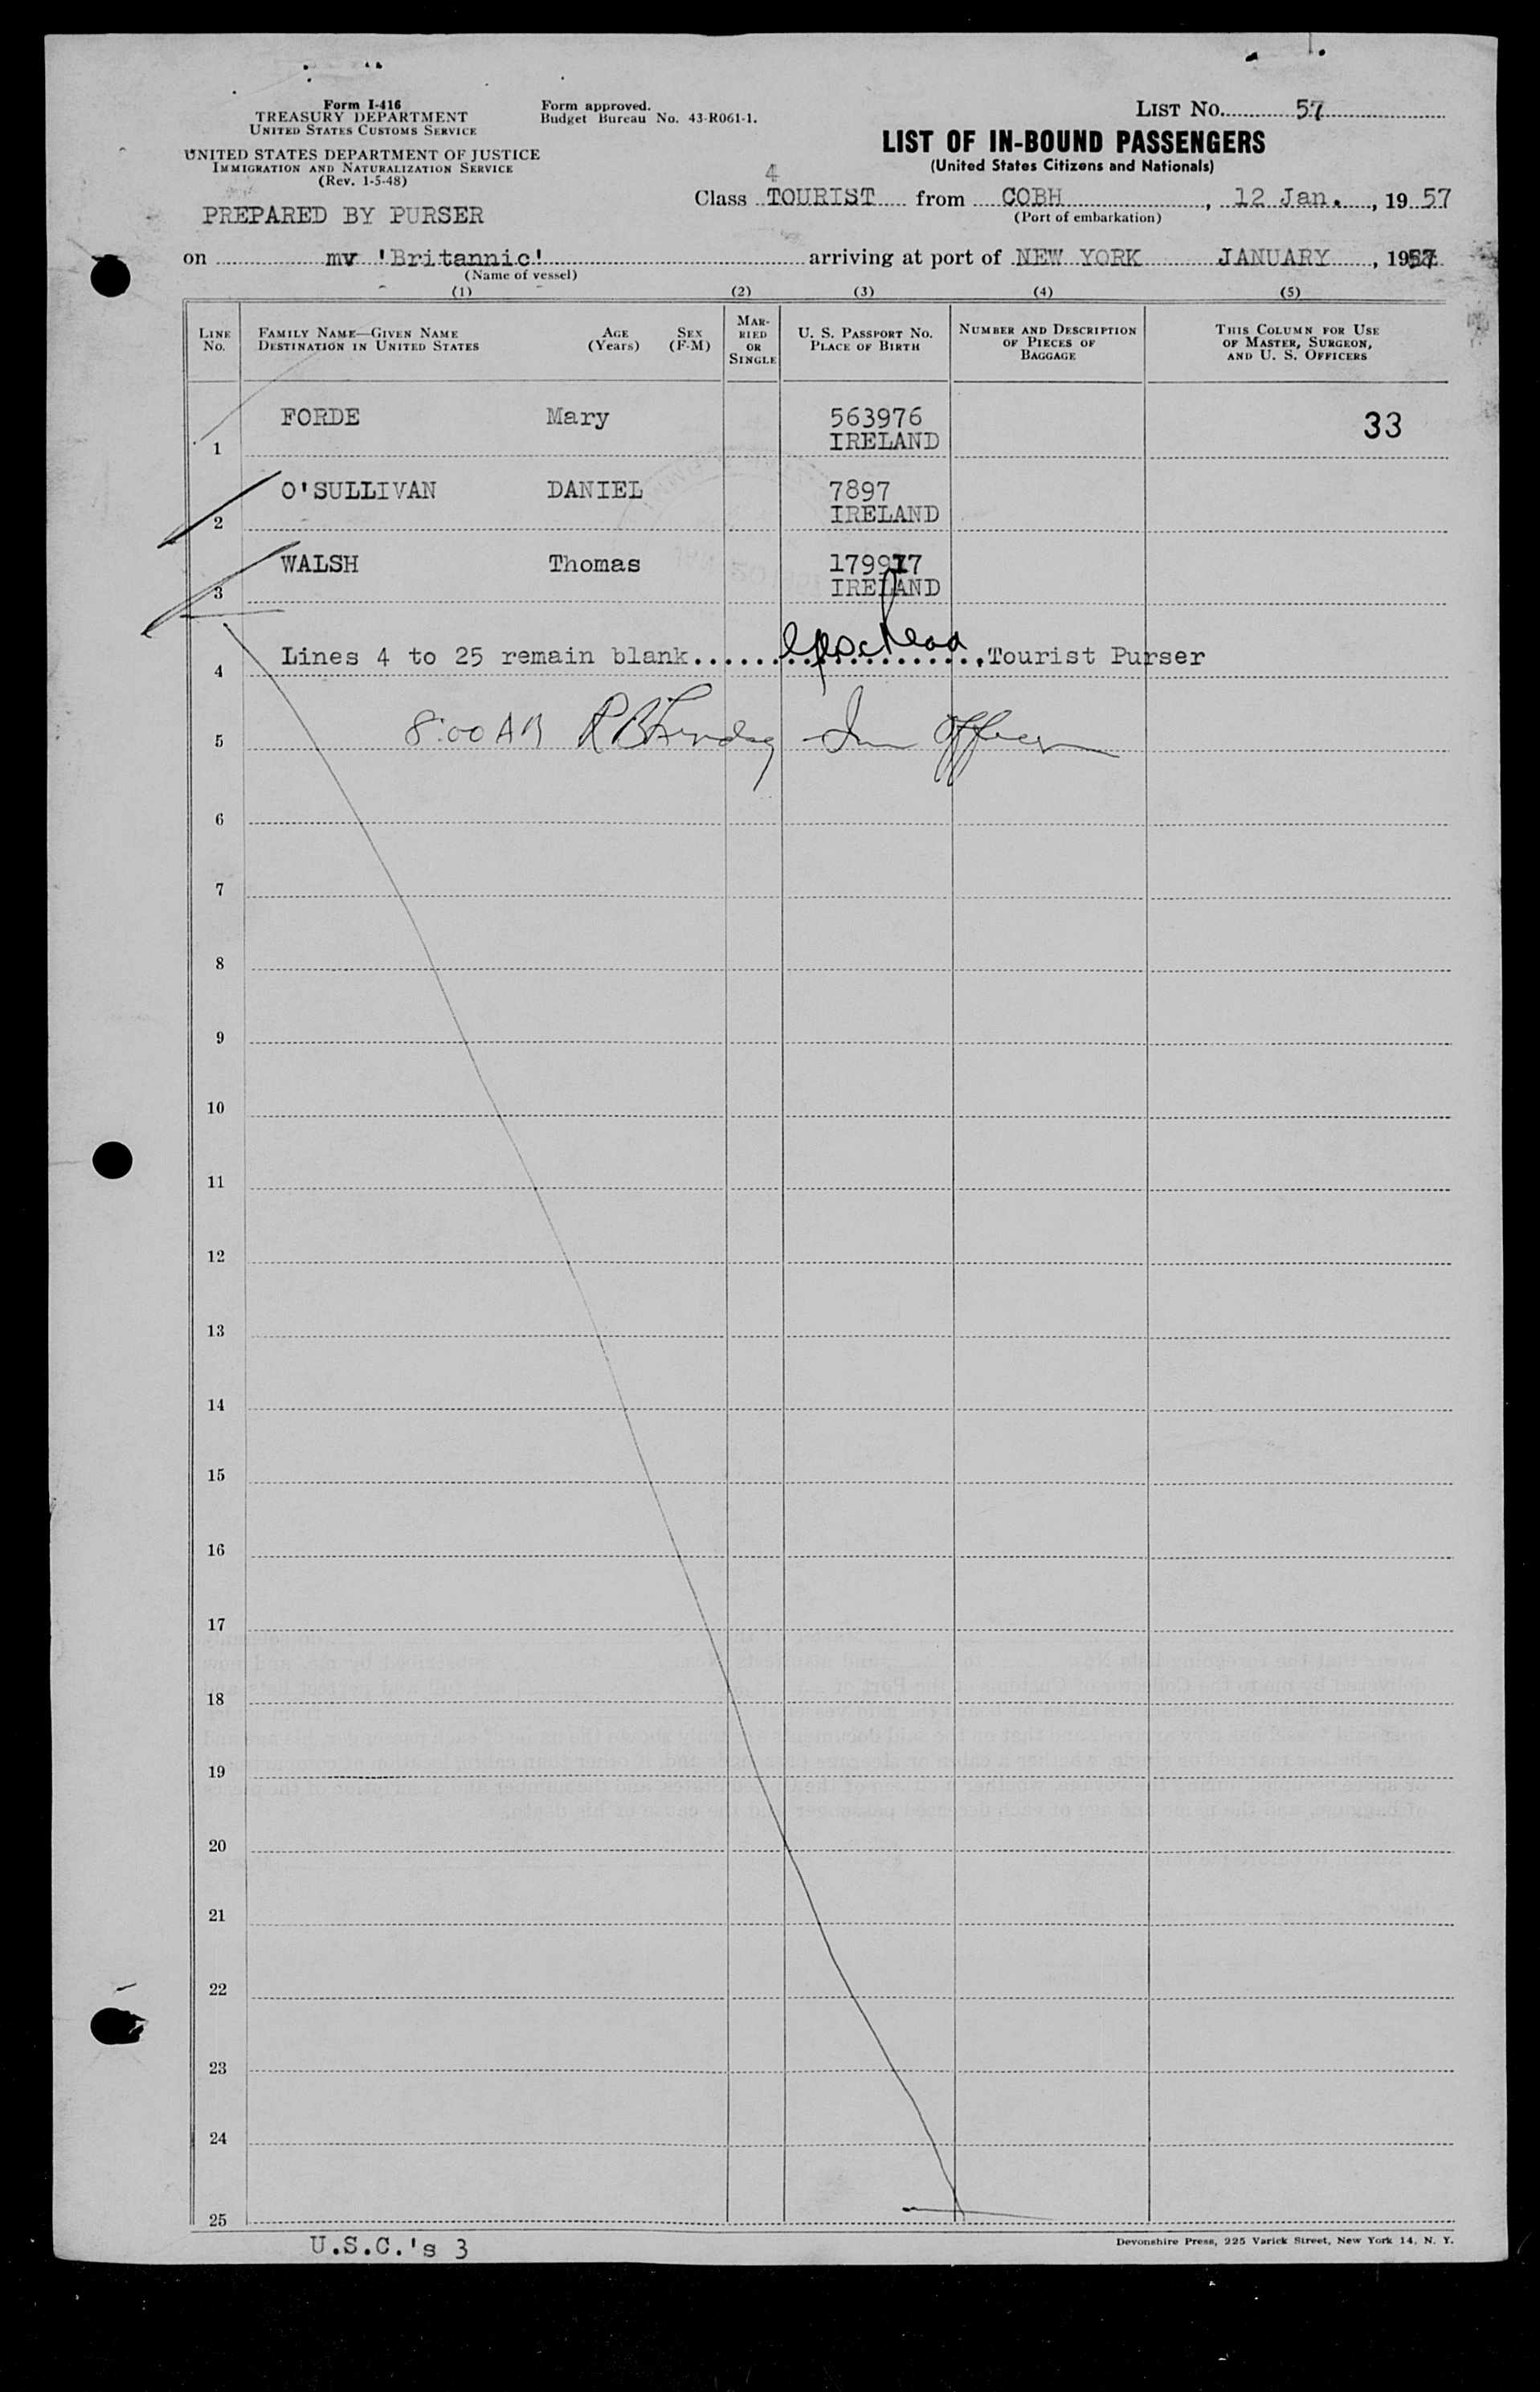 Form I-416
TREASURY DEPARTMENT
UNITED STATES CUSTOMS SERVICE
UNITED STATES DEPARTMENT OF JUSTICE
IMMIGRATION AND NATURALIZATION SERVICE
(Rev. 1-5-48)
PREPARED BY PURSER
Form approved.
Budget Bureau No. 43-R061-1.
LIST NO. 57
LIST OF IN-BOUND PASSENGERS
(United States Citizens and Nationals)
4
Class TOURIST from COBH, 12 Jan., 1957
(Port of embarkation)
on mv 'Britannic' arriving at port of NEW YORK JANUARY, 1957
(Name of vessel)
(1) (2) (3) (4) (5)
LINE NO.
FAMILY NAME—GIVEN NAME
DESTINATION IN UNITED STATES
AGE (Years)
SEX (F-M)
MARRIED OR SINGLE
U. S. PASSPORT NO.
PLACE OF BIRTH
NUMBER AND DESCRIPTION OF PIECES OF BAGGAGE
THIS COLUMN FOR USE OF MASTER, SURGEON, AND U. S. OFFICERS
FORDE Mary 563976 33
1 IRELAND
O'SULLIVAN DANIEL 7897
2 IRELAND
WALSH Thomas 179977
3 IRELAND
4 Lines 4 to 25 remain blank Tourist Purser
5 8:00 Officer
6
7
8
9
10
11
12
13
14
15
16
17
18
19
20
21
22
23
24
25
U.S.C.'s 3
Devonshire Press, 225 Varick Street, New York 14, N. Y.